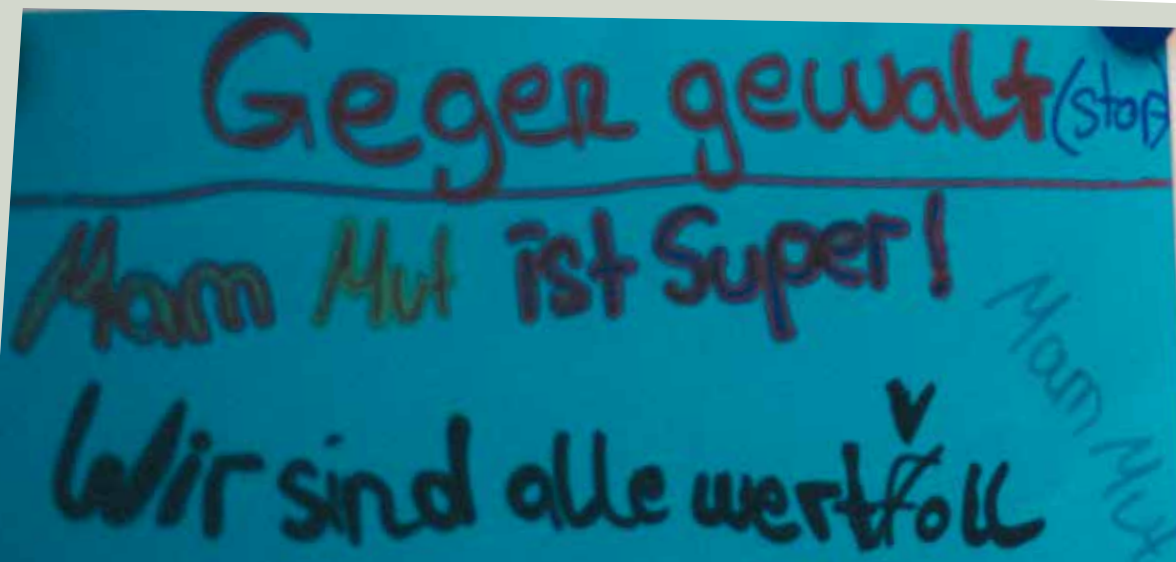 Gegen gewalt (stop)
Mam Mut ist Super!
Wir sind alle wertvoll
Mam Mut